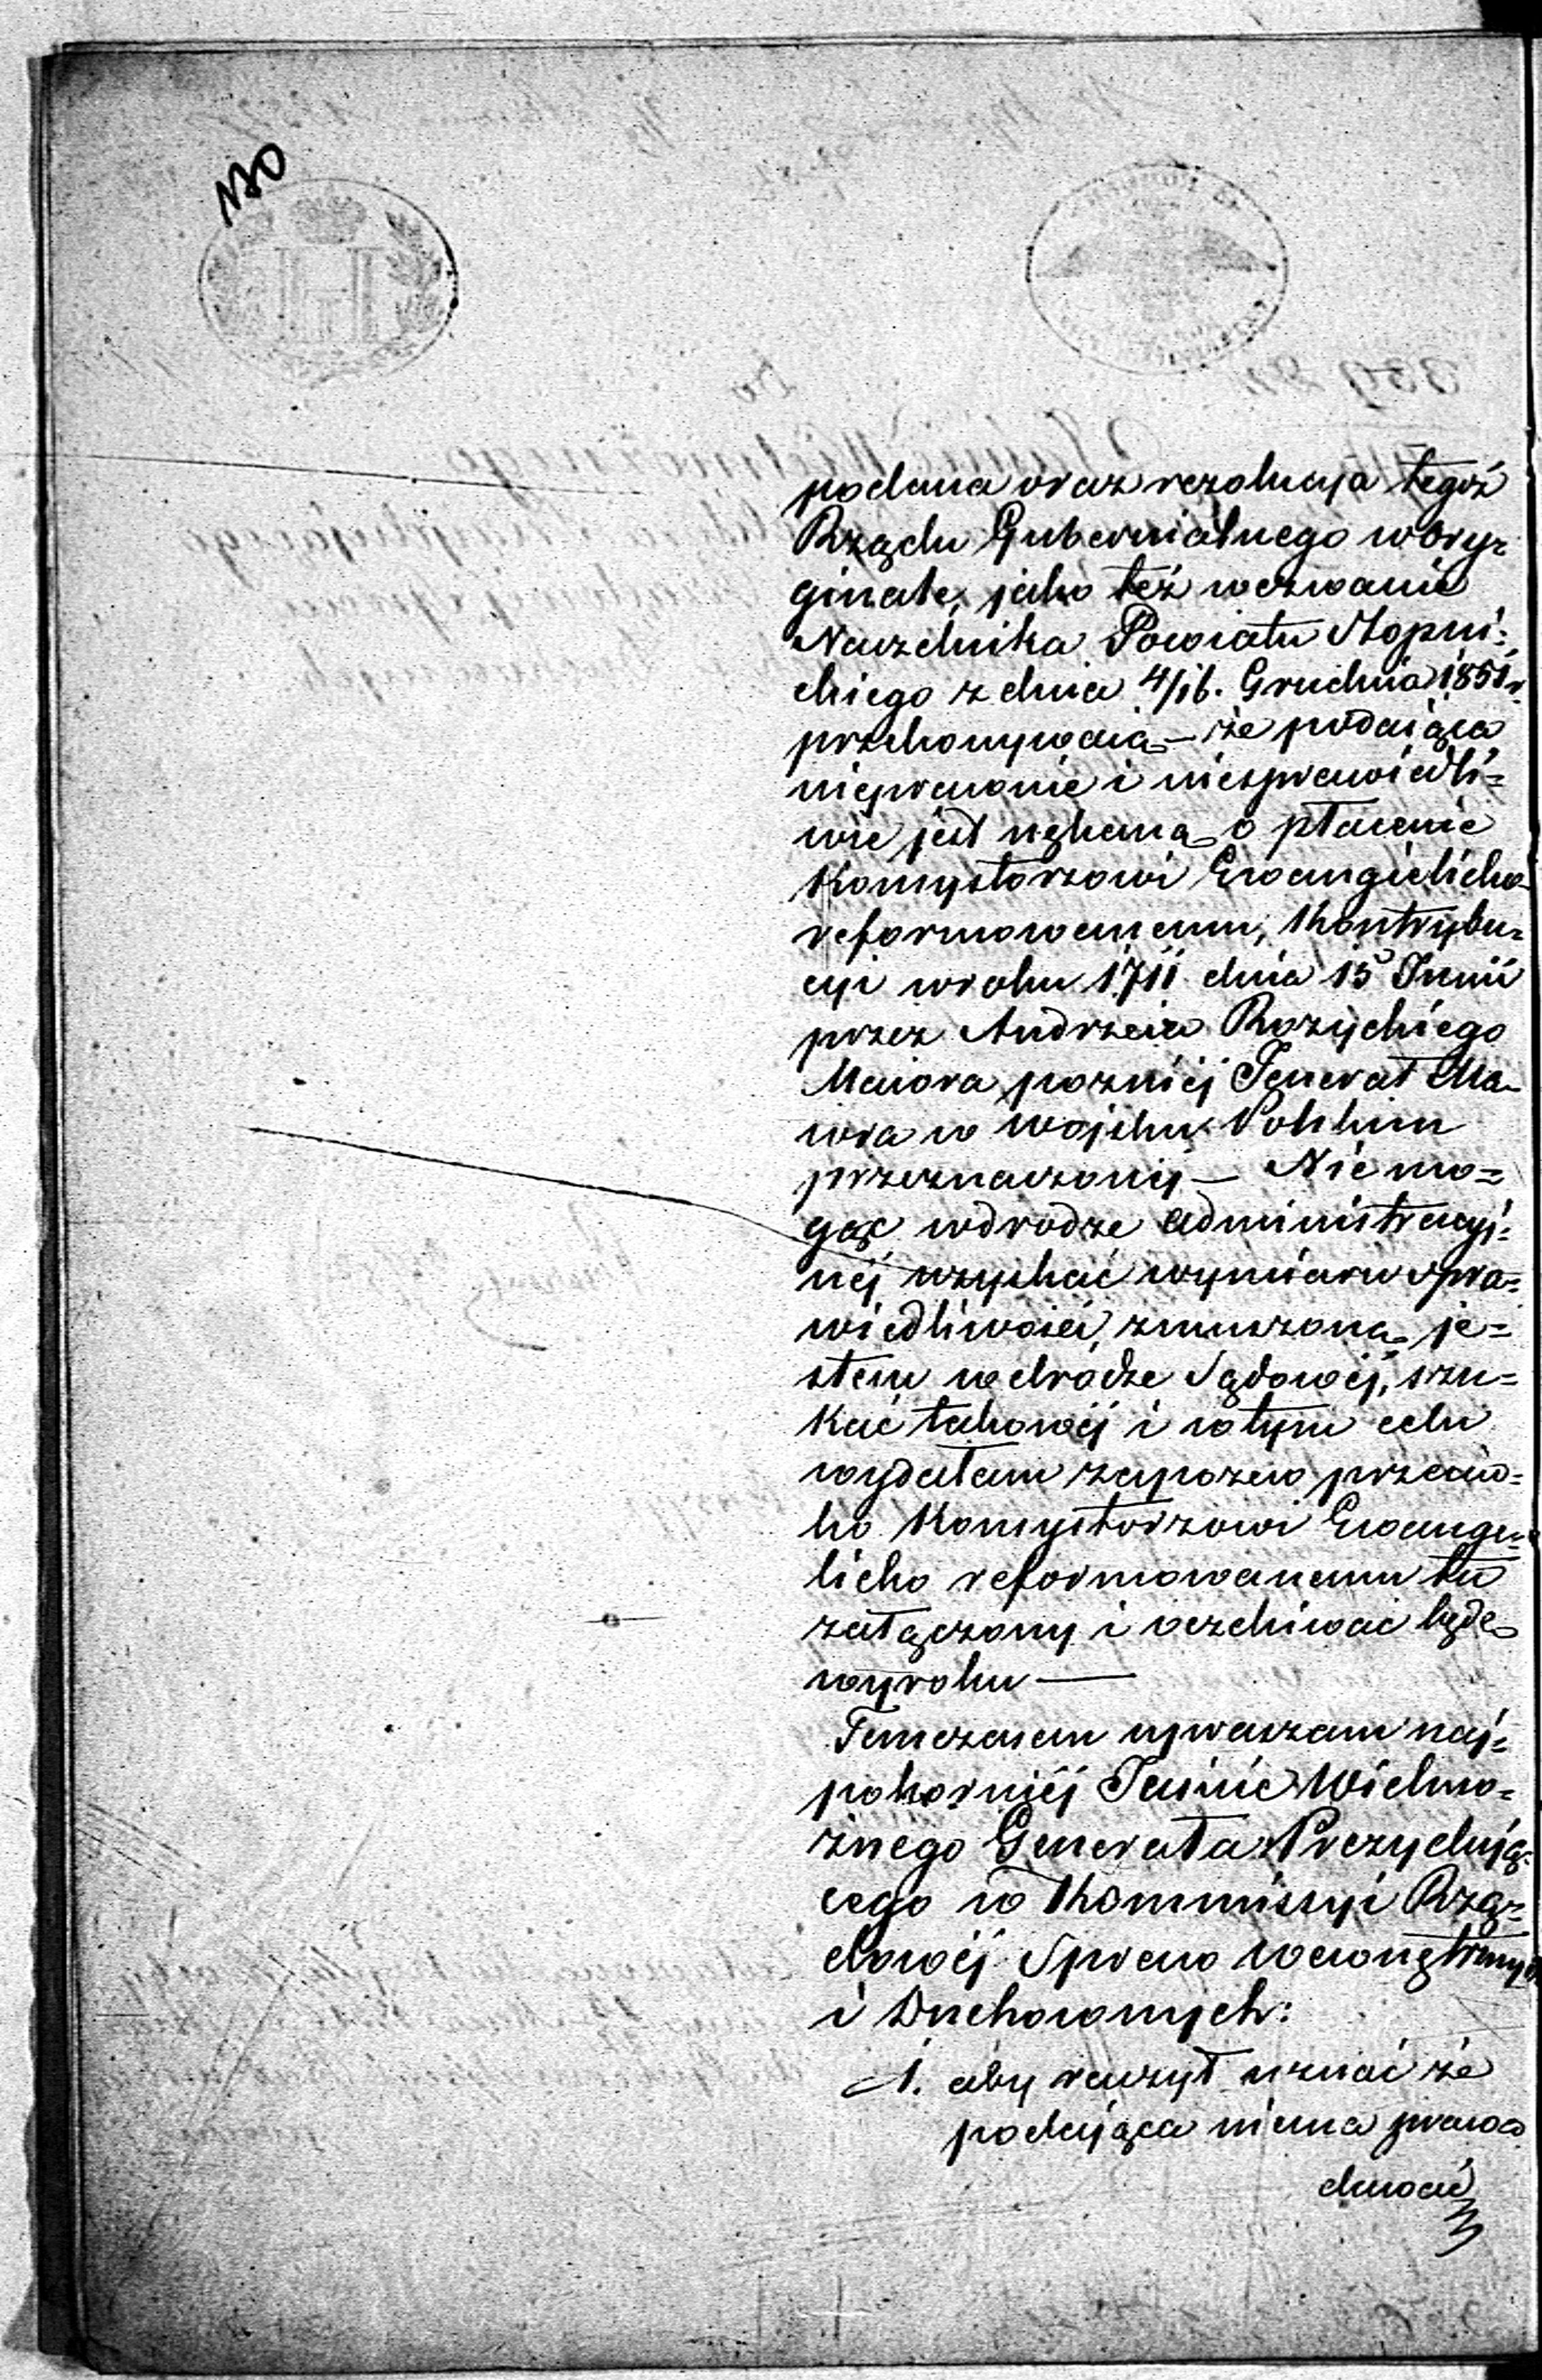 170
podana oraz rezolucya tegoż
Rządu Gubernialnego w ory=
ginale, jako też wezwanie
Naczelnika Powiatu Stopni=
ckiego z dnia 4/16. Grudnia 1851 r
przekonywaią — że podaiąca
nieprawnie i niesprawiedli=
wie jest nękaną o płacenie
Konsystorzowi Ewangielicko
reformowanemu, Kontrybu=
cyi w roku 1711 dnia 15 Junii
przez Andrzeia Rożyckiego
Maiora pozniéj Jenerał Ma=
iora w wojsku Polskim
przeznaczonéj — Nie mo=
gąc w drodze administracyj=
néj uzyskać wymiaru spra=
wiedliwości, zmuszoną je=
stem w drodze Sądowéj, szu=
kać takowéj i w tym celu
wydałam zapozew przeciw=
ko Konsystorzowi Ewange=
licko reformowanemu tu
załączony i oczekiwać będę
wyroku —
Temczasem upraszam naj=
pokorniéj Jaśnie Wielmo=
żnego Generała Prezydują=
cego w Kommissyi Rzą=
dowéj Spraw Wewnętrznych
i Duchownych:
1. aby raczył uznać że
podająca niema prawa